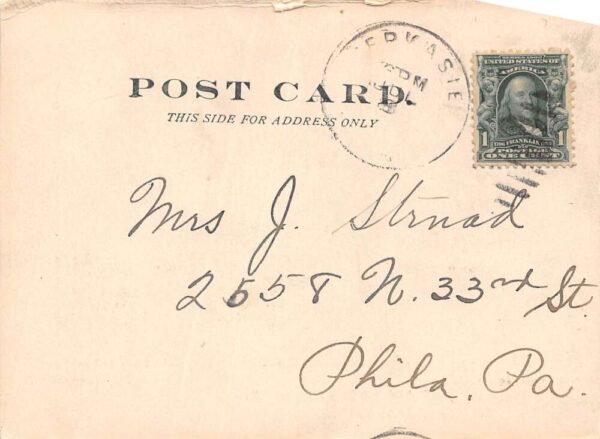 POST CARD.
THIS SIDE FOR ADDRESS ONLY
PM
SERIES 1902
UNITED STATES OF
AMERICA
1 1
FRANKLIN
POSTAGE
ONE CENT
Mrs J. Strnad
2558 N. 33rd St.
Phila, Pa.